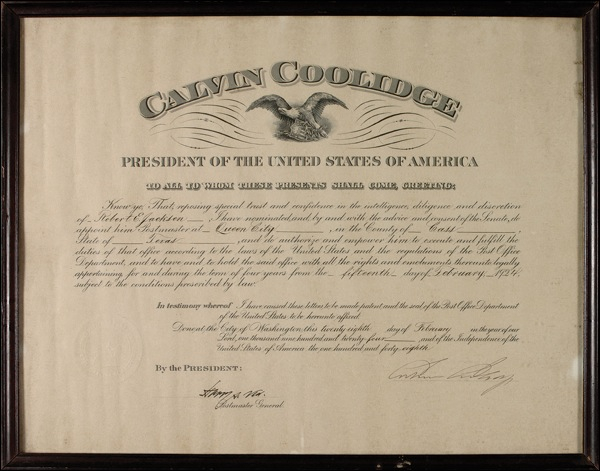 CALVIN COOLIDGE
PRESIDENT OF THE UNITED STATES OF AMERICA
TO ALL TO WHOM THESE PRESENTS SHALL COME, GREETING:
Know ye, That, reposing special trust and confidence in the intelligence, diligence and discretion
of Robert E. Jackson, I have nominated, and by and with the advice and consent of the Senate, do
appoint him Postmaster at Queen City, in the County of Cass,
State of Texas, and do authorize and empower him to execute and fulfill the
duties of that office according to the laws of the United States and the regulations of the Post Office
Department, and to have and to hold the said office with all the rights and emoluments thereunto legally
appertaining for and during the term of four years from the fifteenth day of February, 1924,
subject to the conditions prescribed by law.
In testimony whereof I have caused these letters to be made patent and the seal of the Post Office Department
of the United States to be hereunto affixed.
Done at the City of Washington this twenty eighth day of February in the year of our
Lord, one thousand nine hundred and twenty-four and of the Independence of the
United States of America the one hundred and forty-eighth.
By the PRESIDENT:
Postmaster General.